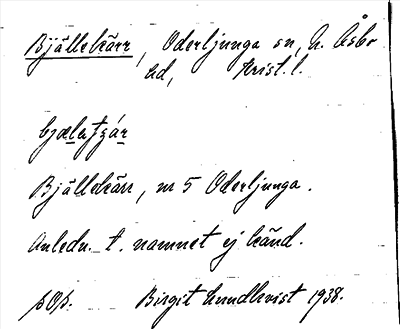 Bjällekärr, Oderljunga sn, N. Åsbo
hd, Krist. l.
Bjällekärr, nr 5 Oderljunga.
Anledn. t. namnet ej känd.
Birgit Lundkvist 1938.